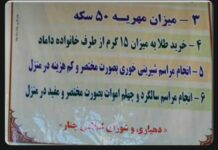 ۳ - میزان مهریه ۵۰ سکه
۴ - خرید طلا به میزان ۱۵ گرم از طرف خانواده داماد
۵ - انجام مراسم شیرینی خوری بصورت مختصر و کم هزینه در منزل
۶ - انجام مراسم سالگرد و چهلم اموات بصورت مختصر و مفید در منزل
دهیاری و شورای اسلامی چنار